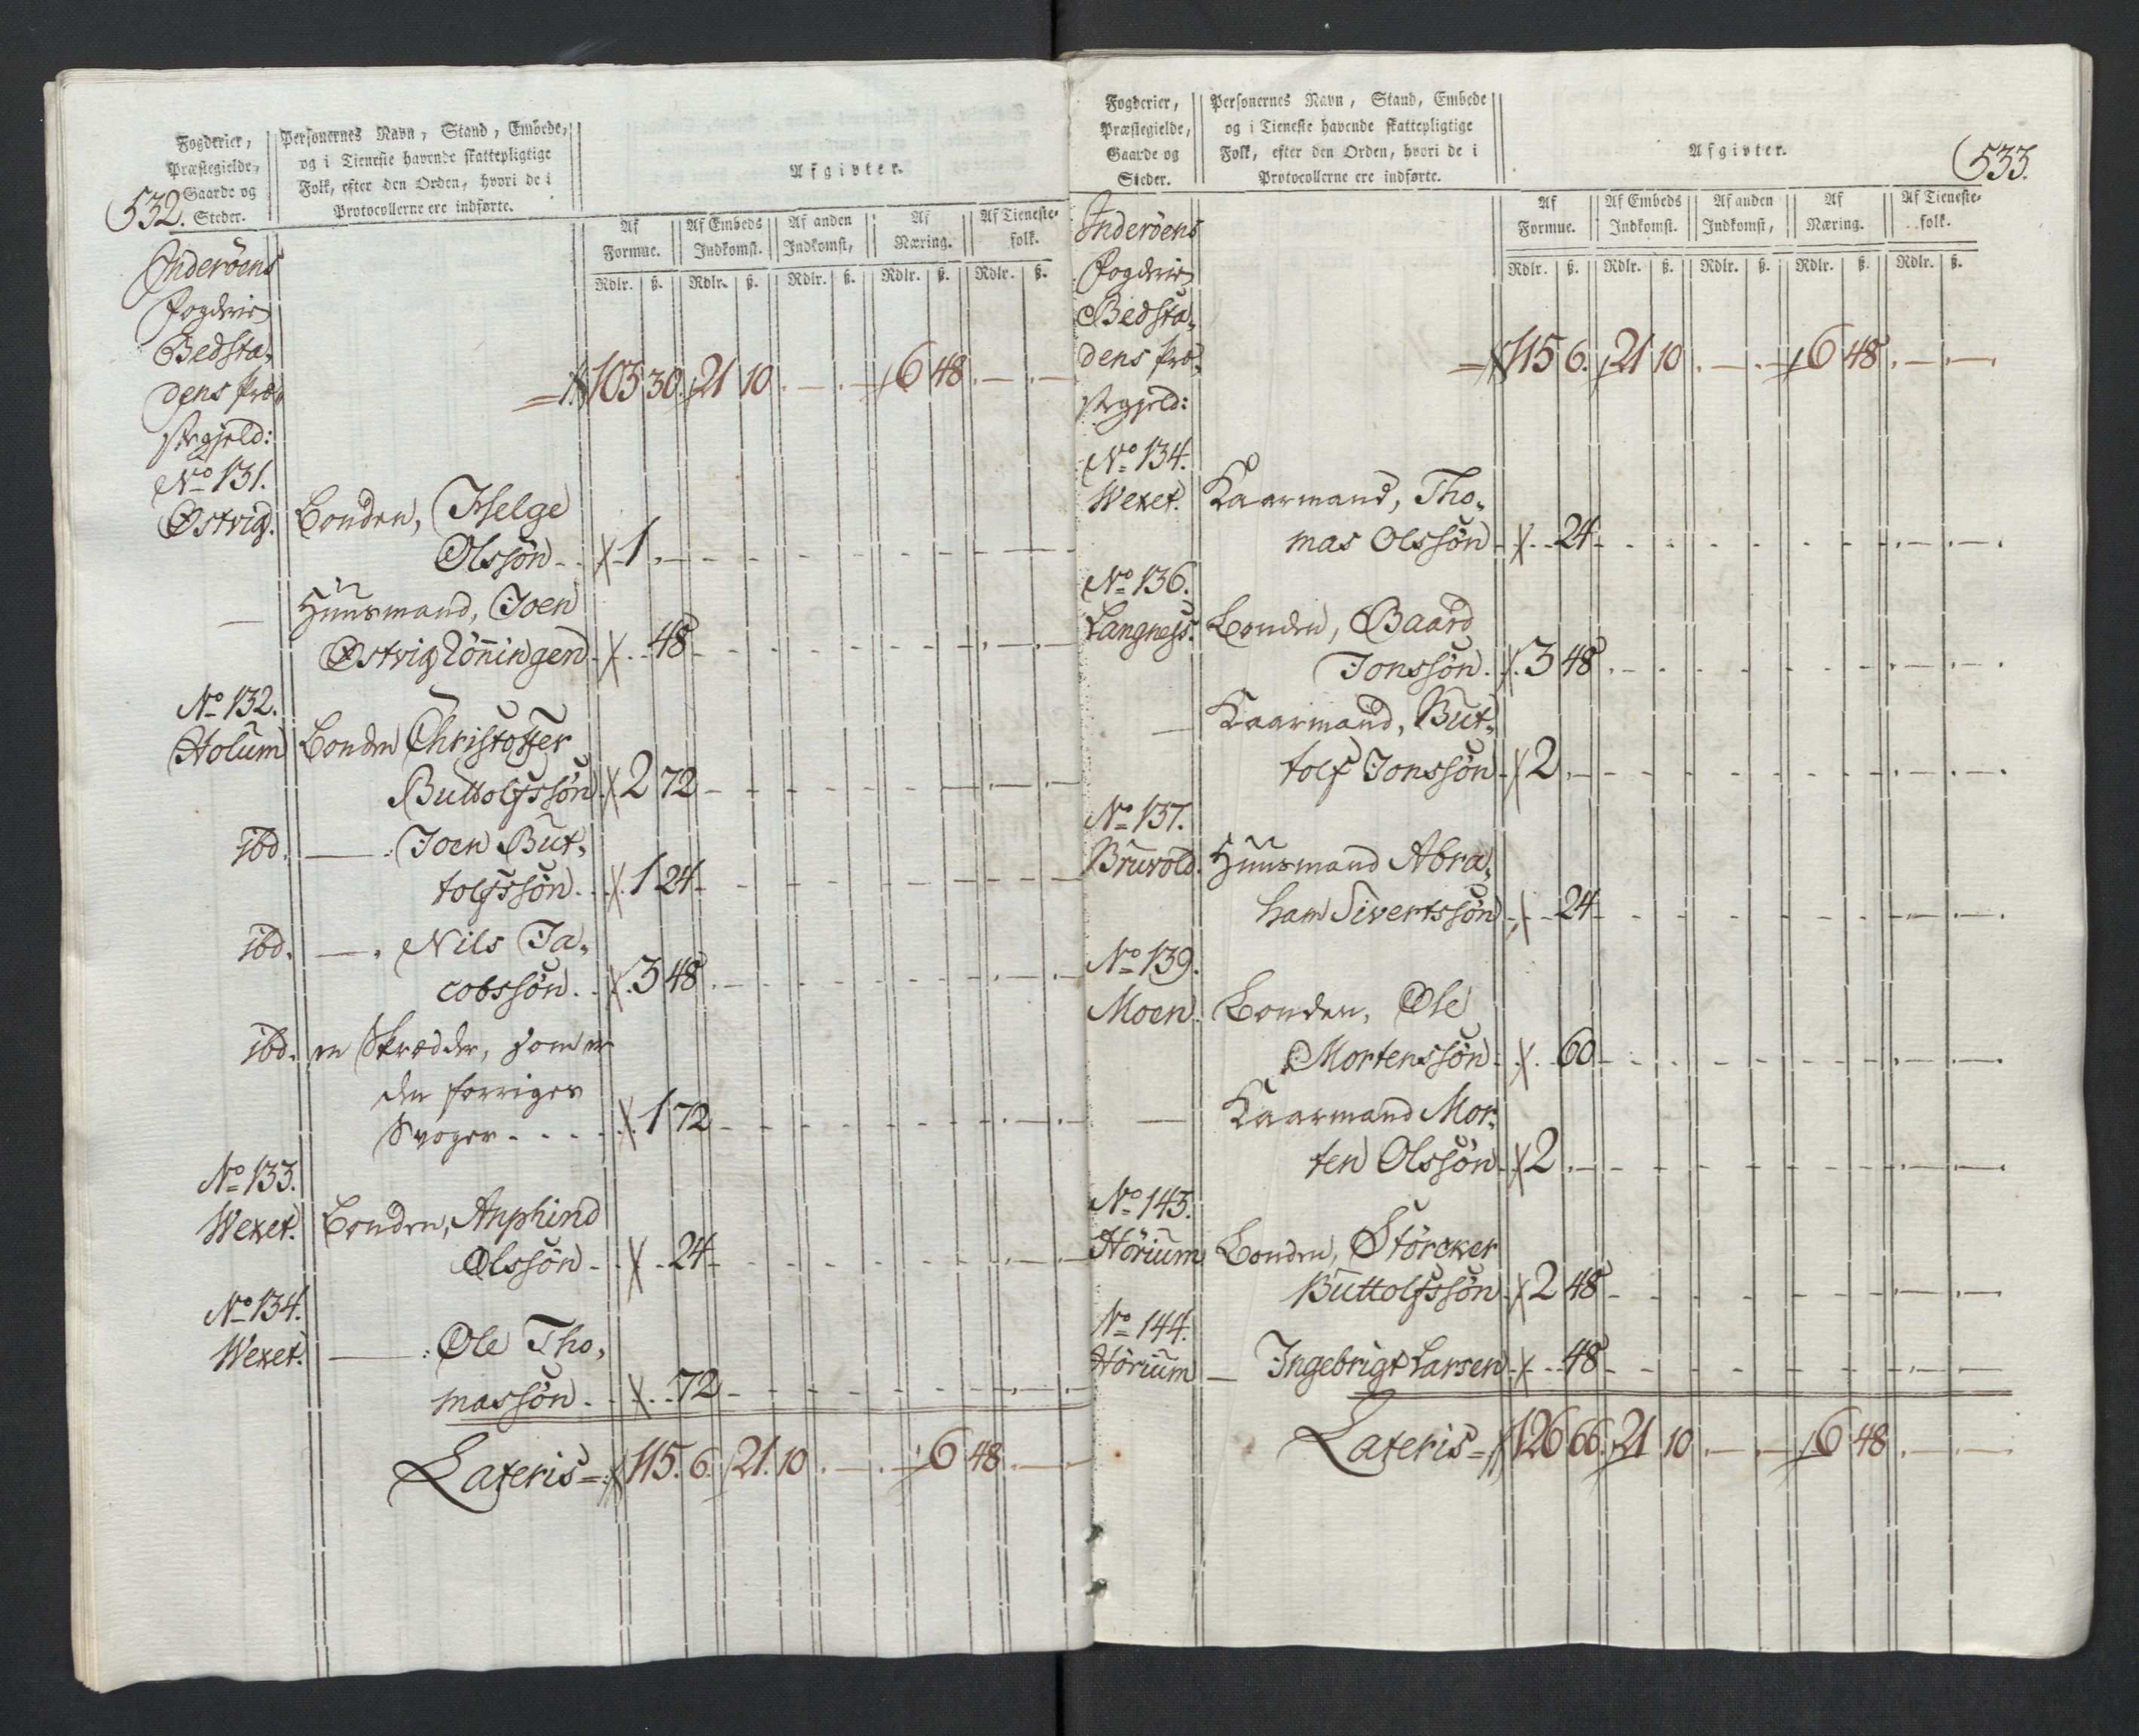 532.
Fogderier,
Præstegielde,
Gaarde og
Steder.
Personernes Navn, Stand, Embede,
og i Tieneste havende skattepligtige
Folk, efter den Orden, hvori de i
Protocollerne ere indførte.
Afgivter.
Af Formue. Af Embeds Indkomst. Af anden Indkomst, Af Næring. Af Tieneste-folk.
Rdlr. ß. Rdlr. ß. Rdlr. ß. Rdlr. ß. Rdlr. ß.
Inderöens
Fogderie
Bedsta-
dens Præ-
stegjeld:
103 30. 21 10. 6 48.
No 131.
Østvig. Bonden, Helge
Olssön 1
— Huusmand, Joen
Østvigrönningen 48
No 132.
Holum Bonden Christoffer
Buttolfssön 2 72
ibd. — Joen But-
tolfssön 1 24
ibd. — Nils Ja-
cobssön 3 48
ibd. en Skrædder, som er
den forriges
Svoger 1 72
No 133.
Wexet. Bonden, Anphind
Olssön 24
No 134.
Wexet. — Ole Tho-
massön 72
Lateris = 115. 6. 21. 10. 6 48.
533.
Fogderier,
Præstegielde,
Gaarde og
Steder.
Personernes Navn, Stand, Embede
og i Tieneste havende skattepligtige
Folk, efter den Orden, hvori de i
Protocollerne ere indførte.
Afgivter.
Af Formue. Af Embeds Indkomst. Af anden Indkomst, Af Næring. Af Tieneste-folk.
Rdlr. ß. Rdlr. ß. Rdlr. ß. Rdlr. ß. Rdlr. ß.
Inderöens
Fogderie
Bedsta-
dens Præ-
stegjeld:
115 6. 21 10. 6 48.
No 134.
Wexet. Kaarmand, Tho-
mas Olssön 24
No 136.
Langness. Bonden, Baard
Jonssön 3 48
— Kaarmand, But-
tolf Jonssön 2
No 137.
Bruvold. Huusmand Abra-
ham Sivertssön 24
No 139.
Moen. Bonden, Ole
Mortenssön 60
— Kaarmand Mor-
ten Olssön 2
No 143.
Hörium Bonden, Störcker
Buttolfssön 2 48
No 144.
Hörium — Ingebrigt Larsen 48
Lateris = 126 66. 21 10. 6 48.